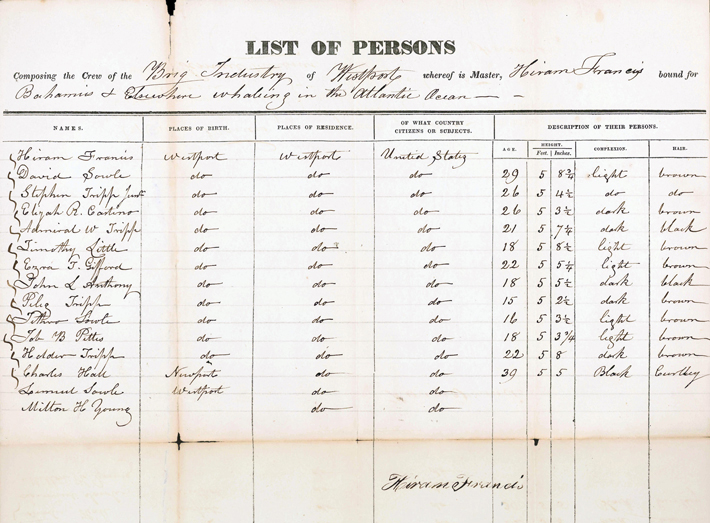 LIST OF PERSONS
Composing the Crew of the Brig Industry of Westport whereof is Master, Hiram Francis bound for
Bahamas & Elsewhere whaleing in the Atlantic Ocean
NAMES. PLACES OF BIRTH. PLACES OF RESIDENCE. OF WHAT COUNTRY CITIZENS OR SUBJECTS. DESCRIPTION OF THEIR PERSONS.
AGE. HEIGHT. Feet. Inches. COMPLEXION. HAIR.
Hiram Francis Westport Westport United States
David Sowle do do do 29 5 8 3/4 light brown
Stephen Tripp do do do 26 5 4 1/2 do do
Elijah R. do do do 26 5 3 1/2 dark brown
Admiral W Tripp do do do 21 5 7 1/4 dark black
Timothy Little do do do 18 5 8 1/2 light brown
Ezra T. Gifford do do do 22 5 5 1/4 light brown
John L Anthony do do do 18 5 5 1/2 dark black
Peleg Tripp do do do 15 5 2 1/2 dark brown
Jethro Sowle do do do 16 5 3 1/2 light brown
Job B Pettis do do do 18 5 3 3/4 light brown
Holder Tripp do do do 22 5 8 dark brown
Charles Hall Newport do do 39 5 5 Black Curlkey
Lemuel Sowle Westport do do
Milton H Young do do
Hiram Francis